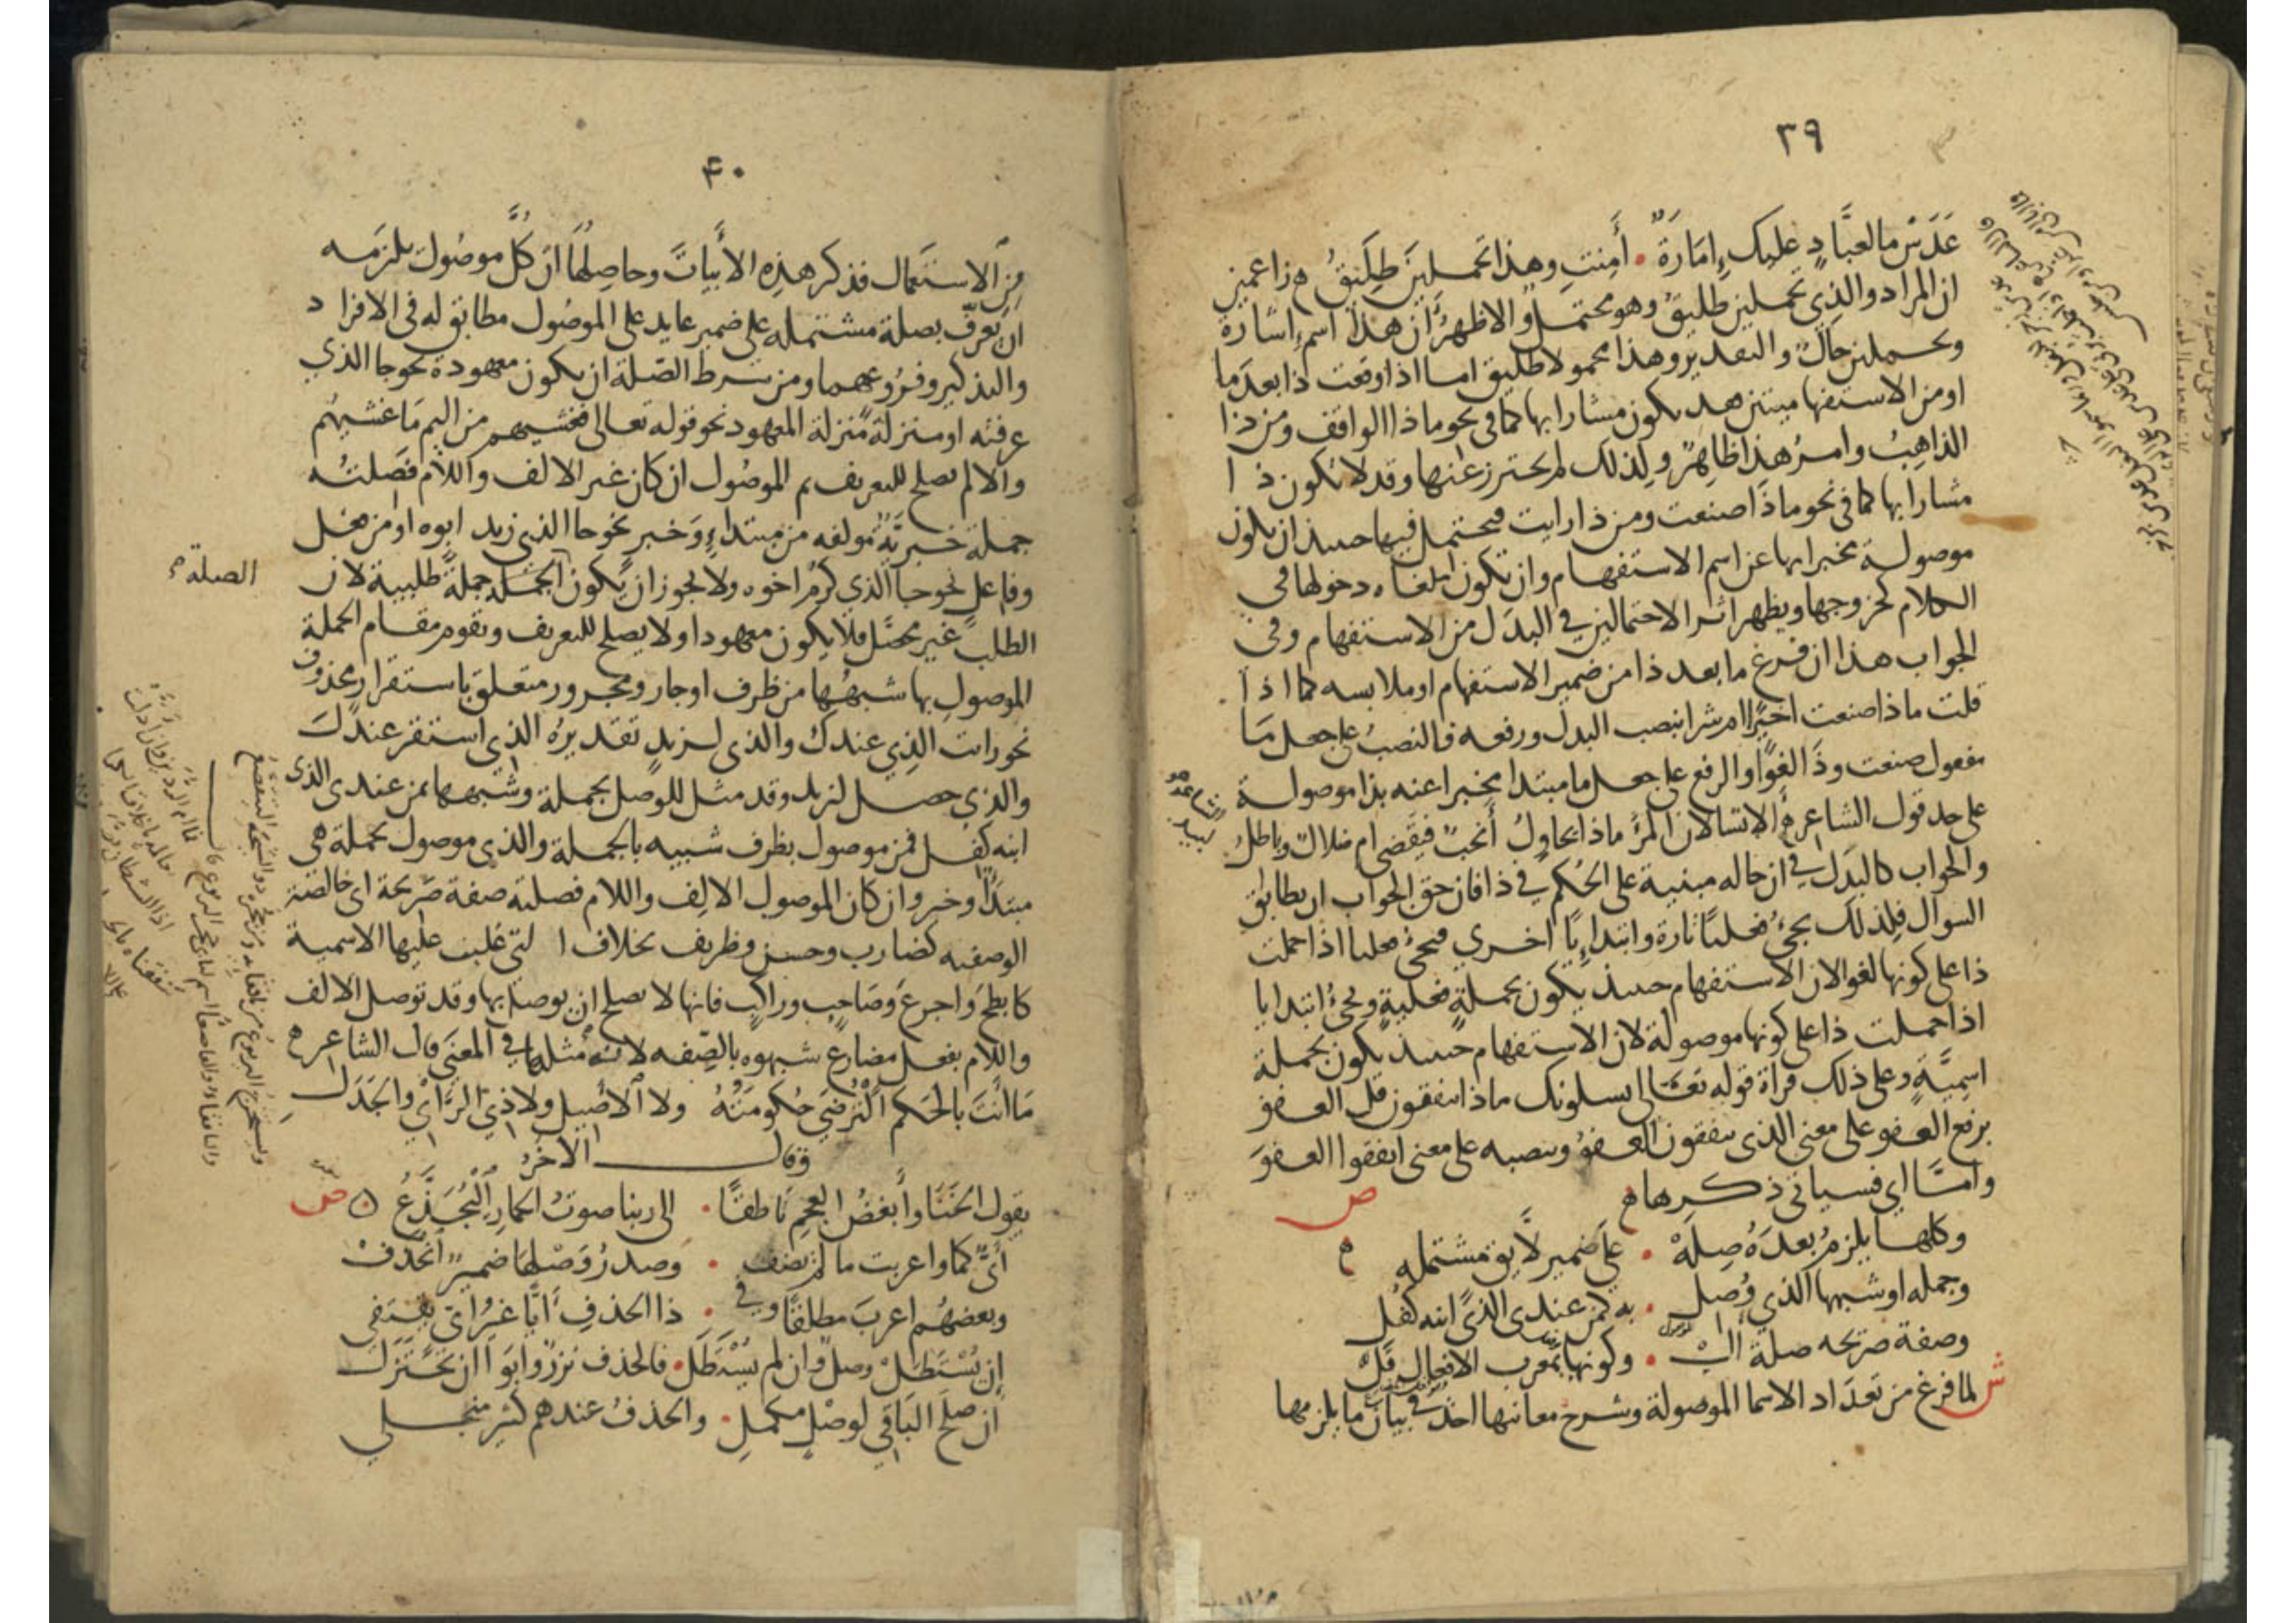 ٣٩
عَدَسْ ما لعبَّادٍ عليك إمَارَةٌ . أَمِنتِ وهذا تحملين طليقُ ه زاعمين
ان المراد والذي تحملين طليقٌ وهو محتمل والاظهرُ ان هذا اسم اشارة
وتحملين حالٌ والتقدير وهذا محمولا طليق اما اذا وقعت ذا بعد ما
او من الاستفهاميتين فقد يكون مشارا بها كما في نحو ماذا الواقف ومن ذا
الذاهبُ وامرُ هذا ظاهرٌ ولذلك لم يحترز عنها وقد لا تكون ذا
مشارا بها كما في نحو ماذا صنعت ومن ذا رايت فيحتمل فيها حينئذ ان تكون
موصولة مخبرا بها عن اسم الاستفهام وان تكون ملغاه دخولها في
الكلام كخروجها ويظهر اثر الاحتمالين في البدل من الاستفهام وفي
الجواب هذا ان فرغ ما بعد ذا من ضمير الاستفهام او ملابسه كما اذا
قلت ماذا صنعت اخيرًا ام شرا بنصب البدل ورفعه فالنصبُ على جعل ما
مفعول صنعت وذا لغوًا والرفع على جعل ما مبتدا مخبرا عنه بذا موصولة
على حد قول الشاعر ه ألا تسالان المرءَ ماذا يحاولُ أَنحبٌ فيقضى ام ضلالٌ وباطلُ
والجواب كالبدل في ان حاله مبنية على الحكم في ذا فان حق الجواب ان يطابق
السوال فلذلك يجيءُ فعليًا تارة وابتدائيًا اخرى فيجيءُ فعليا اذا حملت
ذا على كونها لغوا لان الاستفهام حينئذ يكون بجملةٍ فعليةٍ ويجيءُ ابتدايا
اذا حملت ذا على كونها موصولة لان الاستفهام حينئذ يكون بجملة
اسميَّةٍ وعلى ذلك قراة قوله تعالى يسلونك ماذا ينفقون قل العفو
برفع العفو على معنى الذي ينفقون العفوُ وبنصبه على معنى انفقوا العفوَ
وامَّا اي فسياتي ذكرها ه
ص
وكلها يلزمُ بعدَهُ صِلَهْ . على ضمير لايق مشتمله ه
وجمله او شبهها الذي وُصِل . به كمن عندي الذي ابنه كُفِل
وصفة صريحه صلة الْ . وكونها بمعرب الافعال قَلّ
ش لما فرغ من تعداد الاسما الموصولة وشرح معانيها اخذ في بيان ما يلزمها
لبيد
۴۰
من الاستعمال فذكر هذه الأبيات وحاصلها ان كلَّ موصُول يلزمه
ان يَعرف بصلة مشتمله على ضمير عايد على الموصُول مطابق له في الافراد
والتذكير وفروعهما ومن شرط الصّلة ان يكون معهودة نحو جا الذي
عرفته او منزلة منزلة المعهود نحو قوله تعالى فغشيهم من اليم ما غشيهم
والا لم يصلح للتعريف ثم الموصُول ان كان غير الالف واللام فصلته
جملة خبريَّة مولفه من مبتداءٍ وخبر نحو جا الذي زيد ابوه او من فعل
وفاعل نحو جا الذي كرُم اخوه ولا يجوز ان يكون الجملة جملةً طلبية لان
الصلة
الطلب غير محصّل فلا يكون معهودا ولا يصلح للتعريف ويقوم مقام الجملة
الموصولِ بها شبهُها من ظرف او جار ومجرور متعلق باستقرار محذوف
نحو رايت الذي عندك والذي لزيدٍ تقديرُه الذي استقر عندك
والذي حصل لزيد وقد مثل للوصل بجملة وشبهها بمن عندي الذي
ابنه كفل فمن موصول بظرف شبيه بالجملة والذي موصول بجملة هي
مبتدأ وخبر وان كان الموصول الالف واللام فصلته صفة صريحة اي خالصة
الوصفيه كضارب وحسن وظريف بخلاف ا لتي غلبت عليها الاسمية
كابطح واجرع وصَاحِبٍ وراكب فانها لا يصلح ان يوصل بها وقد توصل الالف
واللام بفعل مضارع شبهوه بالصفه لانه مثلها في المعنى قال الشاعر ه
مَا أنتَ بالحَكم التُرضَى حُكومَتُهُ ولا الأصيل ولا ذي الرَّأي والجَدَل
وقال الآخرُ
يقول الخَنَا وأبغضُ العجمِ ناطقًا . الى ربنا صوتُ الحمارِ اليُجَدَّعُ ه ص
أيٌّ كما واعربت ما لم تضف . وصدرُ وَصْلِها ضميرٌ انحذفْ
وبعضهُم اعربَ مطلقًا وفي . ذا الحذفِ أيًا غيرُ ايّ يقتفي
إن يُسْتَطَلْ وصلٌ وان لم يُسْتَطَل . فالحذف نزرٌ وابَوا ان يُختزَل
ان صلحَ البَاقي لوصْلٍ مكملِ . والحذفُ عندهم كثير منجلي